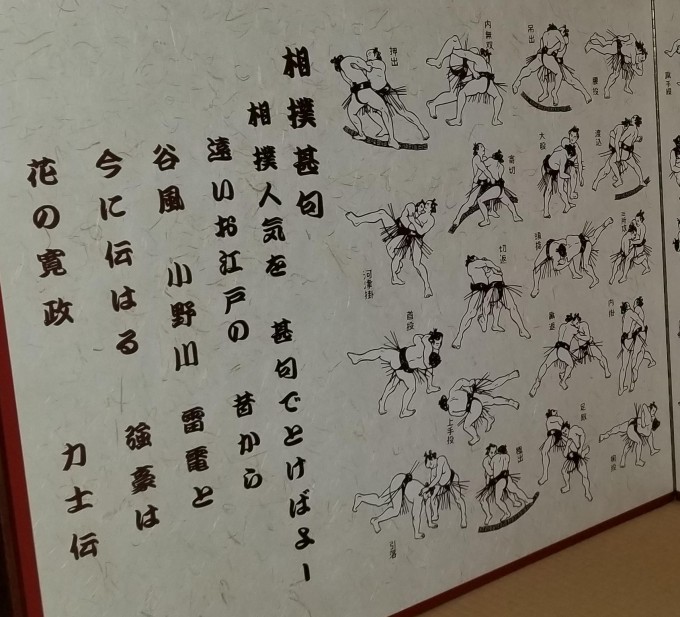 相撲甚句
相撲人気を　甚句でとけばよー
遠いお江戸の　昔から
谷風　小野川　雷電と
今に伝はる　強豪は
花の寛政　力士伝
押出
内無双
吊出
裏投
寄切
大股
渡込
河津掛
切返
頭捻
三所攻
首投
内掛
上手投
足取
引落